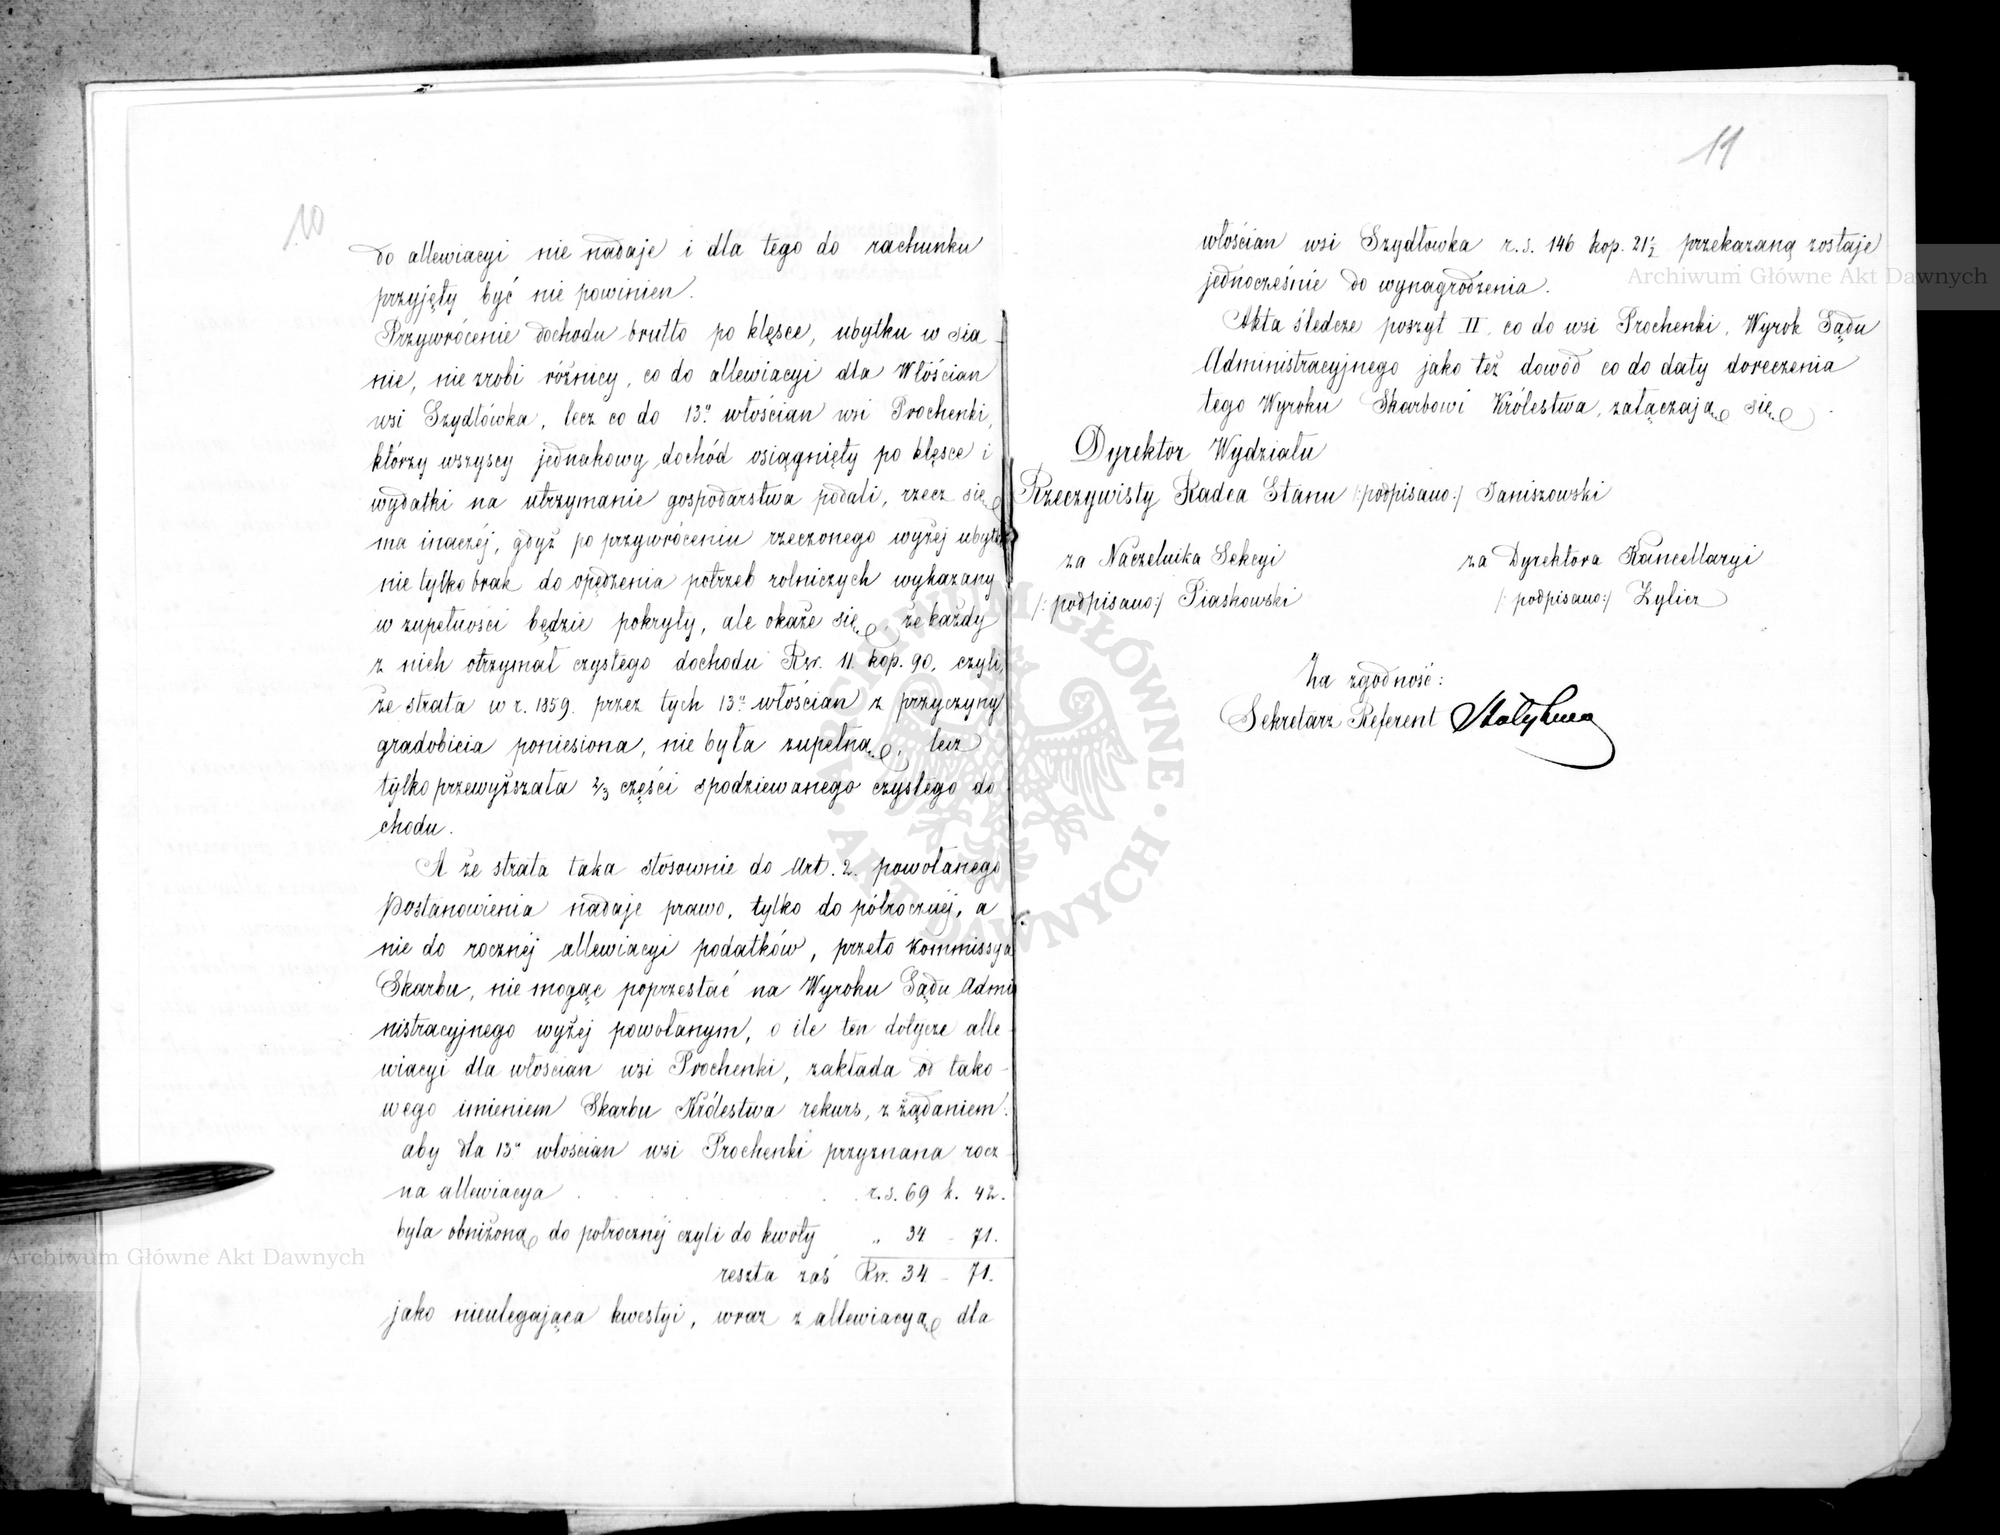 10
do allewiacyi nie nadaje i dla tego do rachunku
przyjęty być nie powinien.
Przywrócenie dochodu brutto po klęsce, ubytku w sia-
nie, nie zrobi różnicy, co do allewiacyi dla Włościan
wsi Szydłówka, lecz co do 13u włościan wsi Prochenki,
którzy wszyscy jednakowy dochód osiągnięty po klęsce i
wydatki na utrzymanie gospodarstwa podali, rzecz się
ma inaczéj, gdyż po przywróceniu rzeczonego wyżéj ubytku
nie tylko brak do opędzenia potrzeb rolniczych wykazany
w zupełności będzie pokryty, ale okaże się, że każdy
z nich otrzymał czystego dochodu Rsr. 11 kop. 90, czyli,
że strata w r. 1859. przez tych 13u włościan z przyczyny
gradobicia poniesiona, nie była zupełną, lecz
tylko przewyższała 2/3 części spodziewanego czystego do
chodu.
A że strata taka stosownie do Art. 2. powołanego
Postanowienia nadaje prawo, tylko do półrocznéj, a
nie do rocznéj allewiacyi podatków, przeto Kommissya
Skarbu, nie mogąc poprzestać na Wyroku Sądu Admi
nistracyjnego wyżéj powołanym, o ile ten dotycze alle-
wiacyi dla włościan wsi Prochenki, zakłada od tako-
wego imieniem Skarbu Królestwa rekurs, z żądaniem:
aby dla 13u włościan wsi Prochenki przyznana rocz-
na allewiacya . . . . . r.s. 69 k. 42.
była obniżoną do półrocznéj czyli do kwoty „ 34 - 71.
reszta zaś Rsr. 34 - 71.
jako nieulegająca kwestyi, wraz z allewiacyą dla
11
włościan wsi Szydłówka r.s. 146 kop. 21½ przekazaną zostaje
jednocześnie do wynagrodzenia.
Akta śledcze poszyt II. co do wsi Prochenki, Wyrok Sądu
Administracyjnego jako też dowód co do daty doręczenia
tego Wyroku Skarbowi Królestwa, załączają się.
Dyrektor Wydziału
Rzeczywisty Radca Stanu /:podpisano:/ Janiszowski
za Naczelnika Sekcyi
/:podpisano:/ Piaskowski
za Dyrektora Kancellaryi
/:podpisano:/ Zylicz
Za zgodność:
Sekretarz Referent
Archiwum Główne Akt Dawnych
Archiwum Główne Akt Dawnych
ARCHIWUM GŁÓWNE · AKT DAWNYCH ·